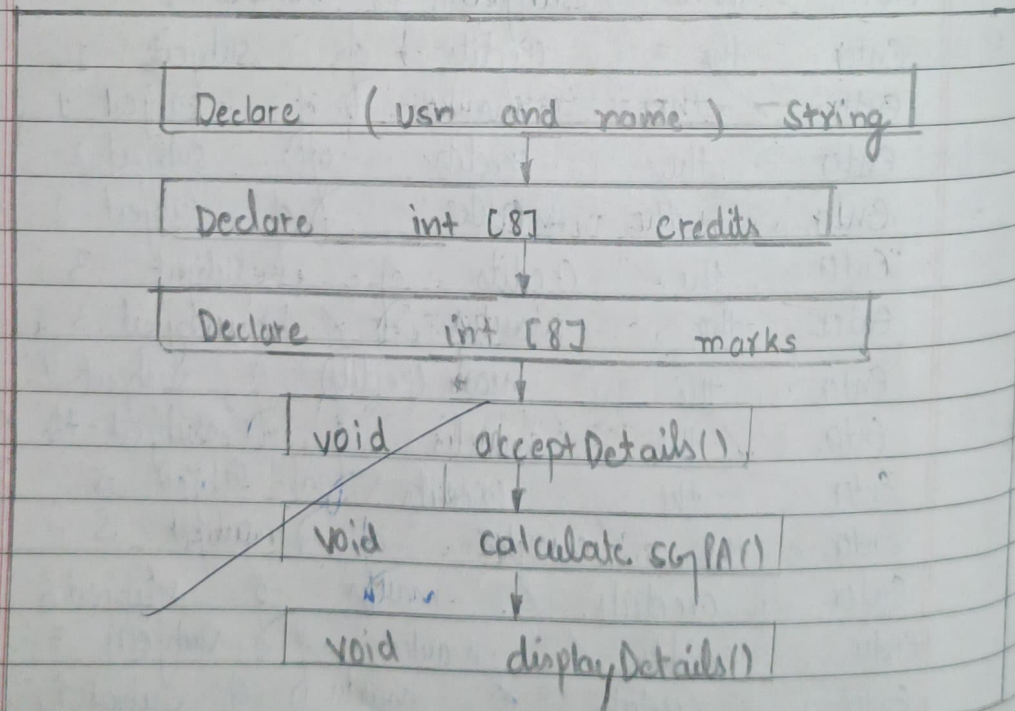 Declare (usn and name) String
Declare int [8] credits
Declare int [8] marks
void acceptDetails()
void calculate SGPA()
void displayDetails()